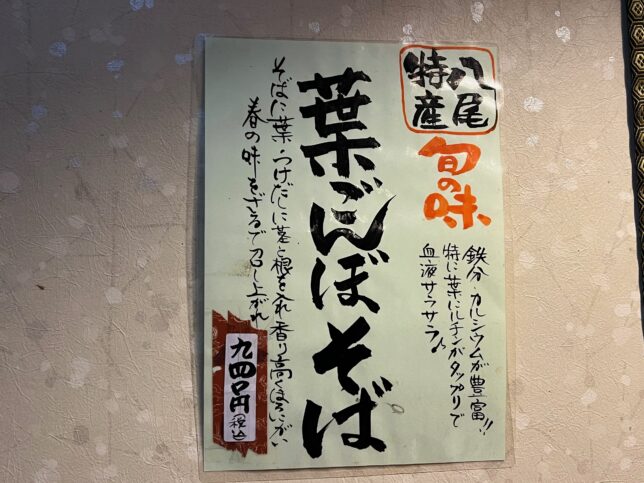 八尾
特産
旬の味
鉄分・カルシウムが豊富!!
特に葉にルチンがタップリで
血液サラサラ♪
葉ごんぼそば
そばに葉・つけだしに茎と根を入れ香り高くほろにがい
春の味をざるで召し上がれ
九四〇円(税込)